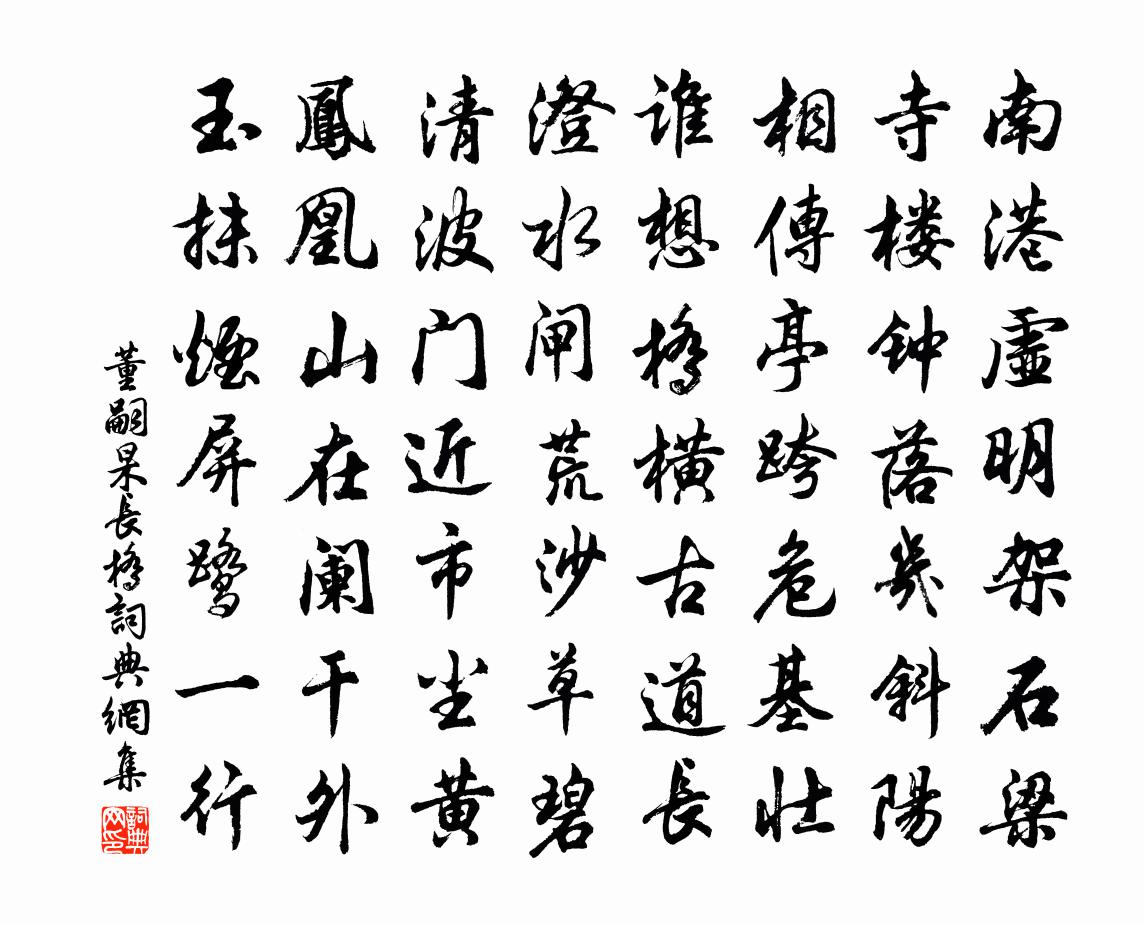 南港虚明架石梁
寺楼钟落幾斜陽
相傳亭跨危基壮
谁想橋横古道長
澄水闸荒沙草碧
清波门近市尘黄
鳳凰山在阑干外
玉抹煙屏鹭一行
董嗣杲長橋詞典網集
詞典网印